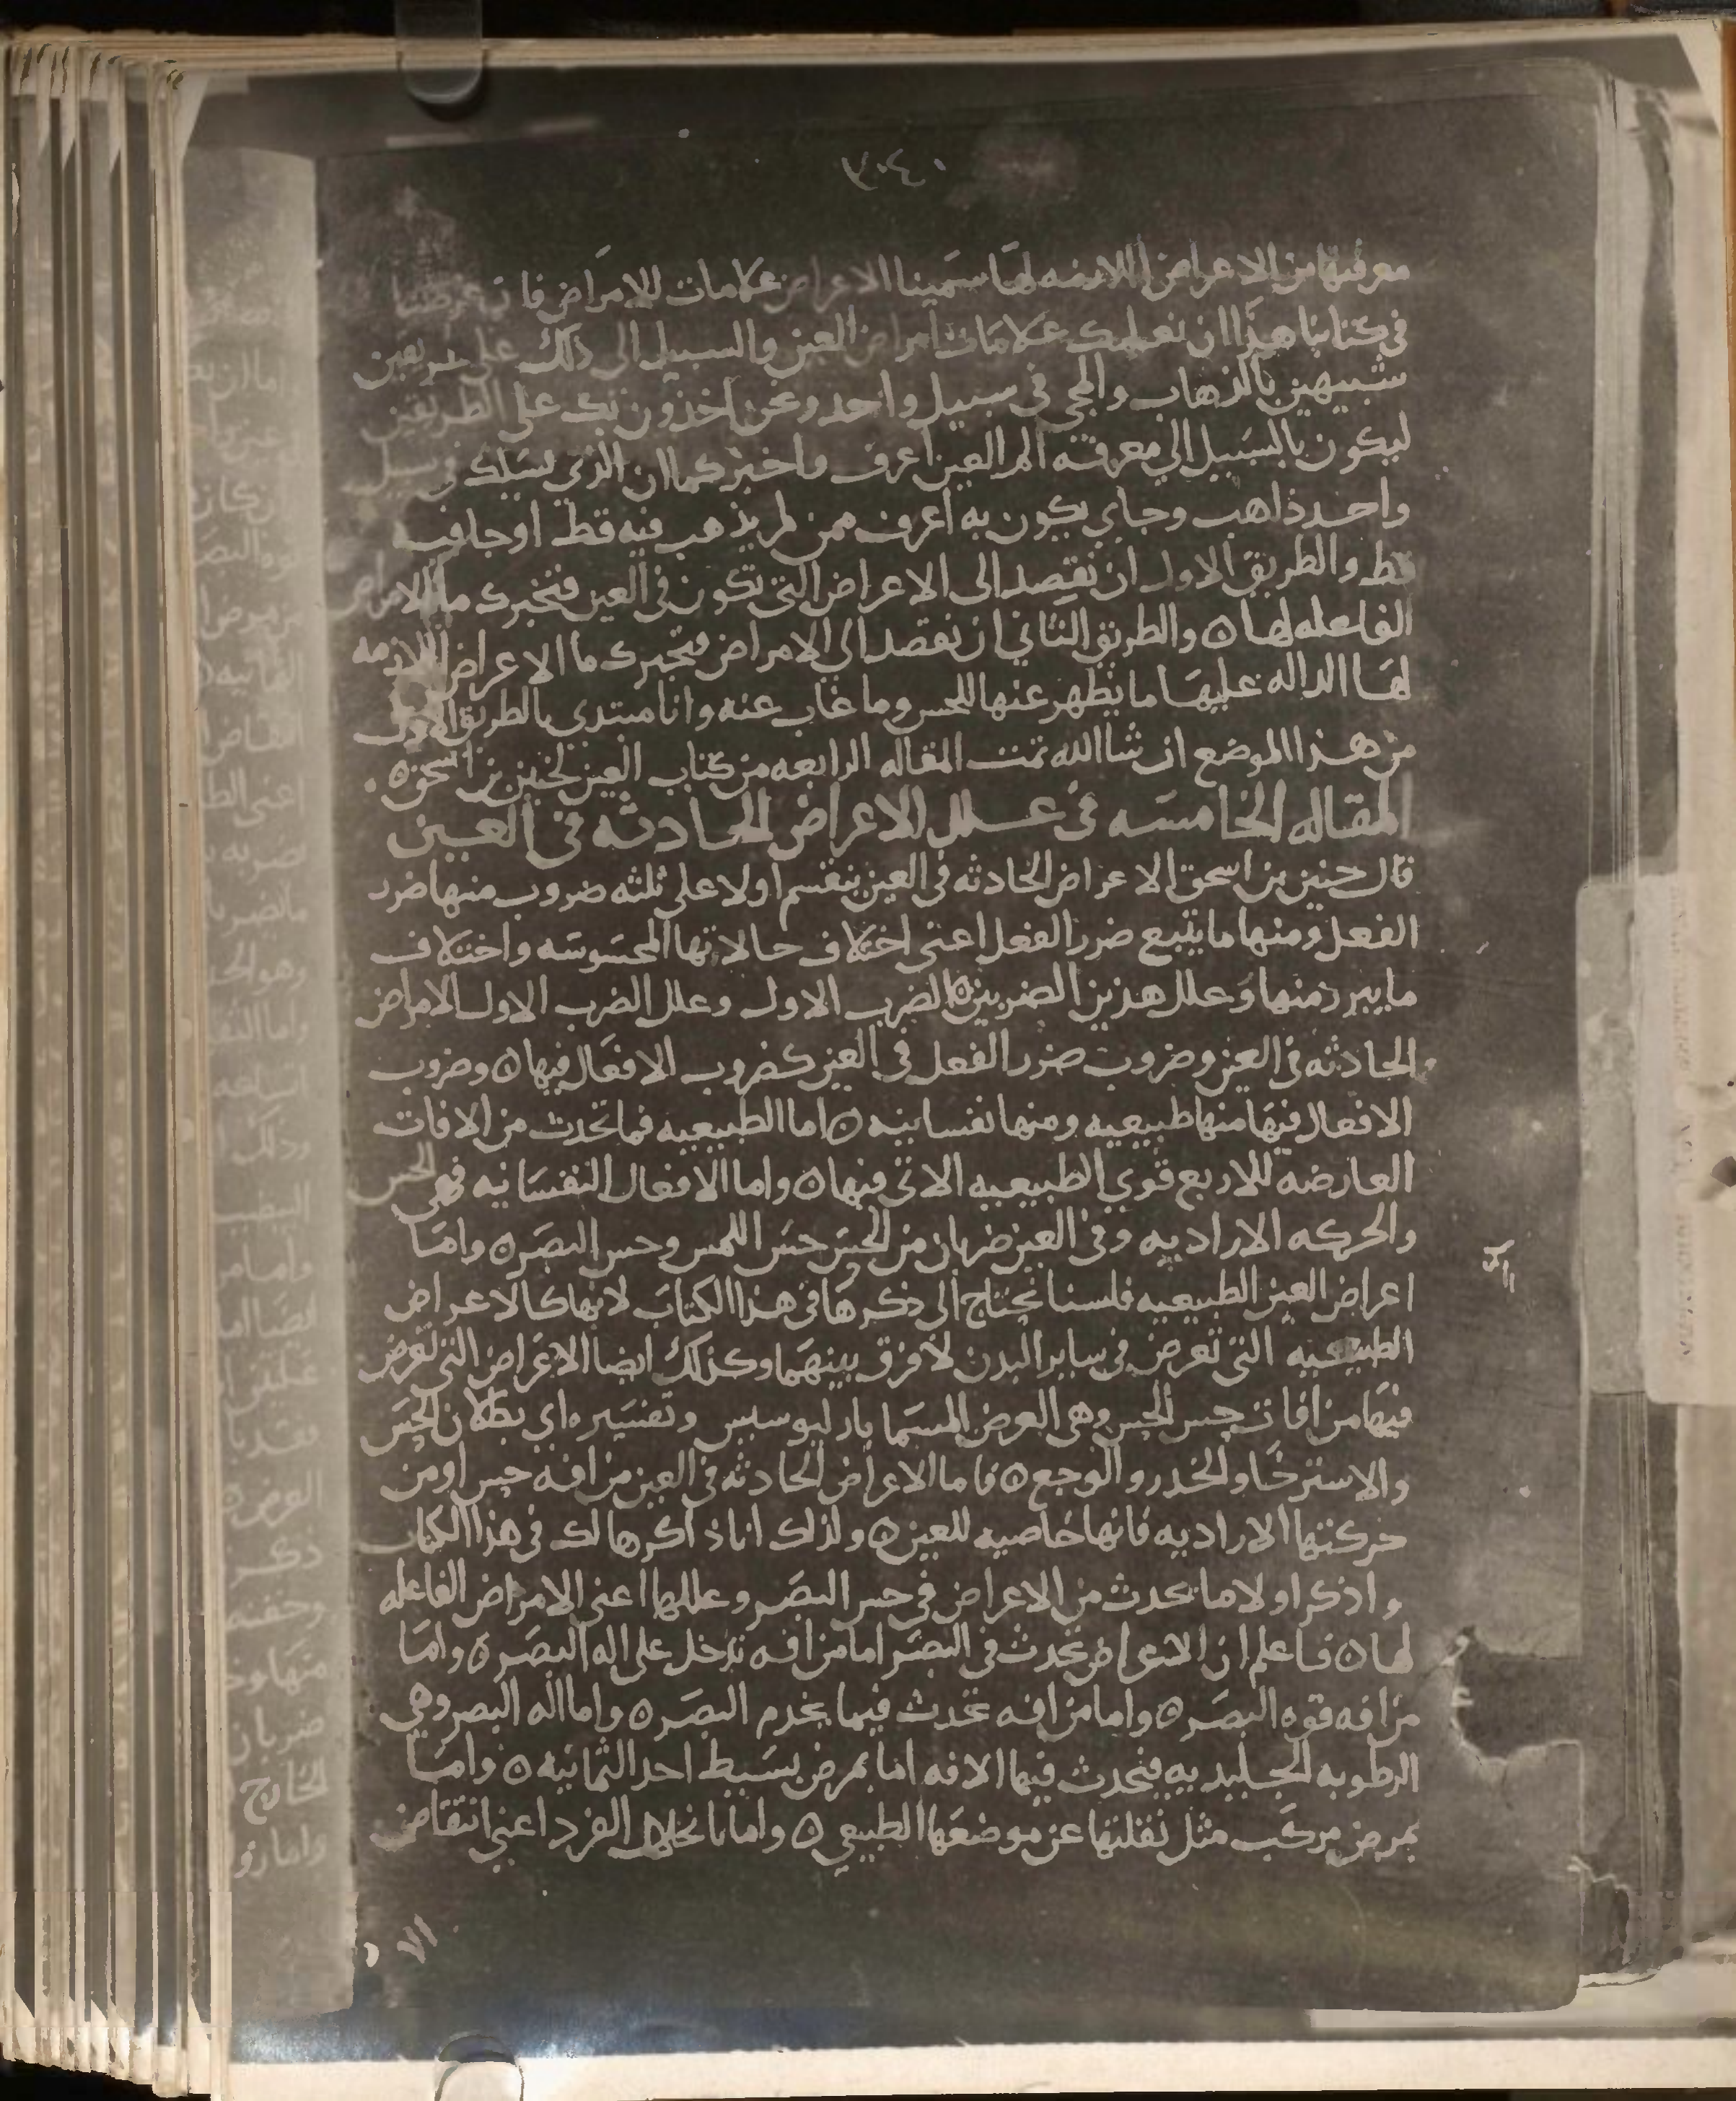 معرفتها من الاعراض اللازمه لها سمينا الاعراض علامات للامراض فان غرضنا
في كتابنا هذا ان نعلمك علامات امراض العين والسبيل الى ذلك على طريقين
شبيهين بالذهاب والمجي في سبيل واحد ونحن اخذون بك على الطريقين
ليكون بالسبيل الي معرفته الم العين اعرف واخبر كما ان الذي يسلك في سبيل
واحد ذاهب وجاي يكون به اعرف ممن لم يذهب فيه قط او جا فيه
قط والطريق الاول ان نقصد الى الاعراض التي تكون في العين فنخبرك ما الامراض
الفاعله لها ه والطريق الثاني ان نقصد الي الامراض فنخبرك ما الاعراض اللازمه
لها الداله عليها ما يظهر عنها للحس وما غاب عنه وانا مبتدي بالطريق الاول
من هذا الموضع ان شا الله تمت المقاله الرابعه من كتاب العين لحنين بن اسحق ه
المقاله الخامسه في علل الاعراض الحادثه في العين
قال حنين بن اسحق الاعراض الحادثه في العين ينقسم اولا على ثلثه ضروب منها ضرر
الفعل ومنها ما يتبع ضرر الفعل اعني اختلاف حالاتها المحسوسه واختلاف
ما يبرز منها وعلل هذين الضربين ه الضرب الاول وعلل الضرب الاول الامراض
الحادثه في العين وضروب ضرر الفعل في العين كضروب الافعال فيها ه وضروب
الافعال فيها منها طبيعيه ومنها نفسانيه ه اما الطبيعيه فما تحدث من الافات
العارضه للاربع قوي الطبيعيه الاتي فيها ه واما الافعال النفسانيه فهي الحس
والحركه الاراديه وفي العين ضربان من الحس حس اللمس وحس البصر ه واما
اعراض العين الطبيعيه فلسنا نحتاج الى ذكرها في هذا الكتاب لانها كالاعراض
الطبيعيه التي تعرض في ساير البدن لا فرق بينهما وكذلك ايضا الاعراض التي تعرض
فيها من افات حس الحس وهي العرض المسما بارليوسيس وتفسيره اي بطلان الحس
والاسترخا والخدر والوجع ه فاما الاعراض الحادثه في العين من افه حس او من
حركتها الاراديه فانها خاصيه للعين ه ولذلك انا ذاكرها لك في هذا الكتاب
واذكر اولا ما يحدث من الاعراض في حس البصر وعللها اعني الامراض الفاعله
لها ه فاعلم ان الاعراض تحدث في البصر اما من افه تدخل على اله البصر ه واما
من افه قوه البصر ه واما من افه تحدث فيما يخدم البصر ه واما اله البصر وهي
الرطوبه الجليديه فتحدث فيها الافه اما بمرض بسيط احد الثمانيه ه واما
بمرض مركب مثل نقلتها عن موضعها الطبيعي ه واما بانحلال الفرد اعني انتقاض